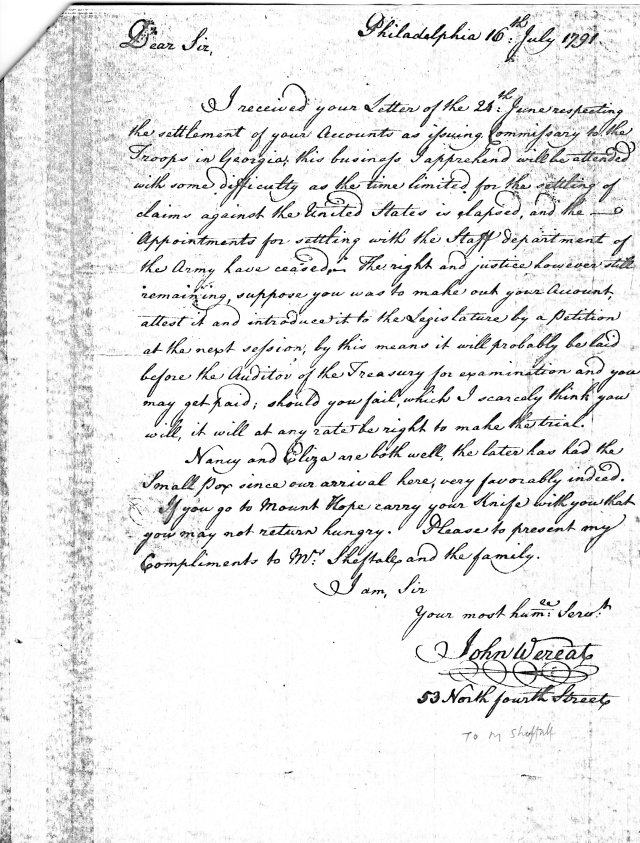 Philadelphia 16th July 1791
Dear Sir,
I received your Letter of the 24th June respecting
the settlement of your Accounts as issuing Commissary to the
Troops in Georgia; this business I apprehend will be attended
with some difficulty as the time limited for the settling of
claims against the United States is elapsed, and the —
Appointments for settling with the Staff department of
the Army have ceased. The right and justice however still
remaining, suppose you was to make out your Account,
attest it and introduce it to the Legislature by a Petition
at the next session, by this means it will probably be laid
before the Auditor of the Treasury for examination and you
may get paid; should you fail, which I scarcely think you
will, it will at any rate be right to make the trial.
Nancy and Eliza are both well, the later has had the
Small Pox since our arrival here, very favorably indeed.
If you go to Mount Hope carry your Knife with you that
you may not return hungry. Please to present my
Compliments to Mrs Sheftall and the family.
I am, Sir
Your most humble Servt
John Wereat
53 North fourth Street
To M Sheftall